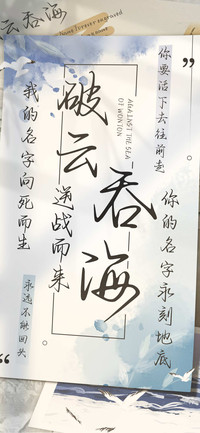 云吞海
Name forever engraved
你要活下去往前走
破云
吞海
AGAINST THE SEA
OF WONTON
逆战而来
我的名字向死而生
你的名字永刻地底
永远不能回头